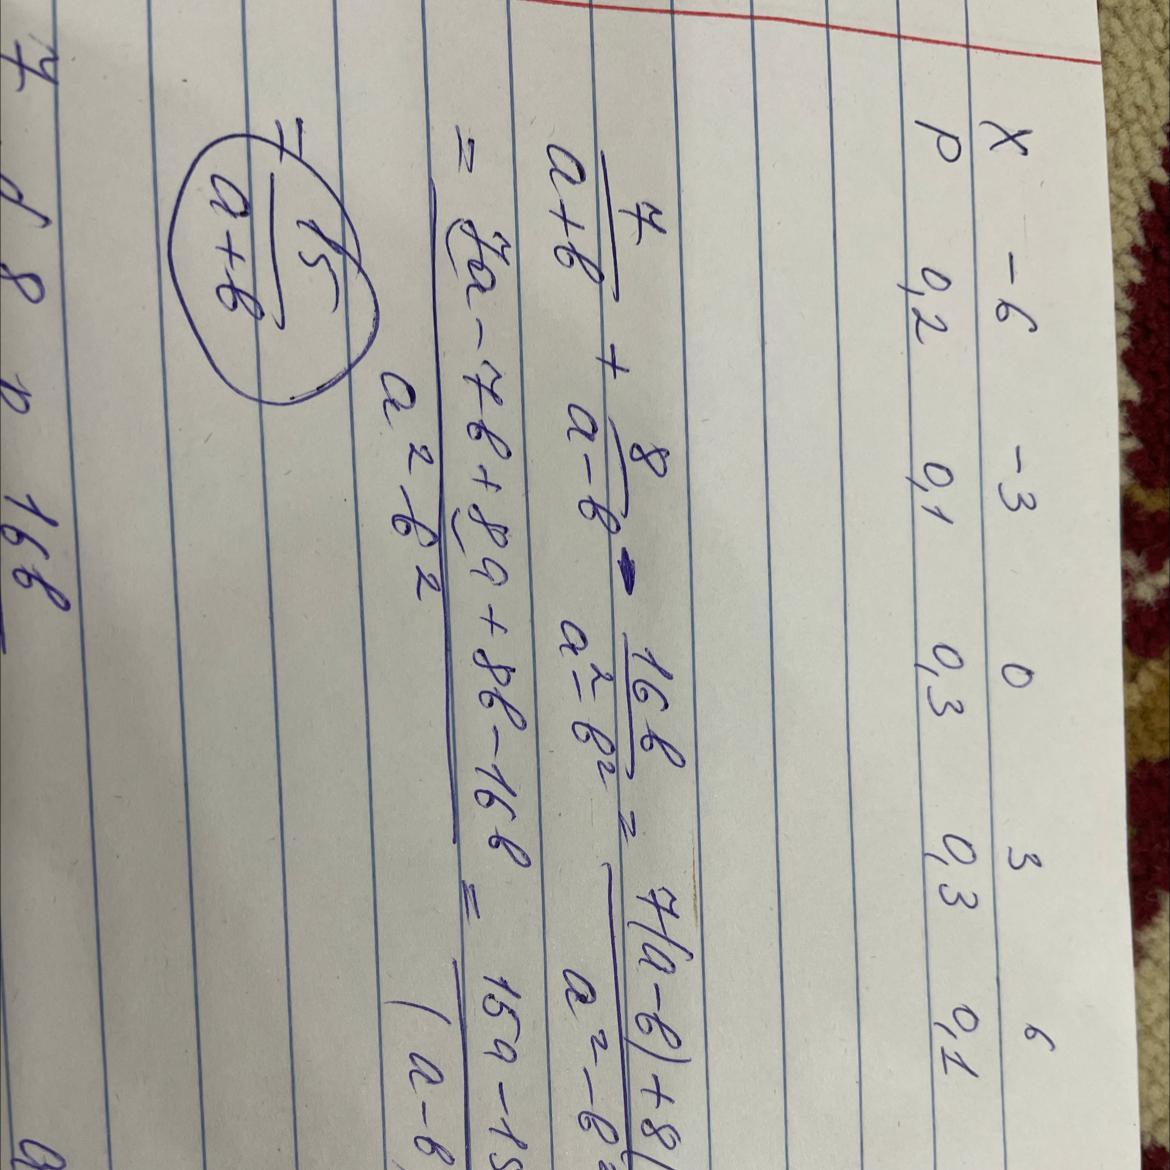 X -6 -3 0 3 6
P 0,2 0,1 0,3 0,3 0,1
7/(a+b) + 8/(a-b) - 16b/(a²-b²) = 7(a-b)+8(
a²-b²
= 7a-7b+8a+8b-16b = 15a-15
a²-b² (a-b
= 15/(a+b)
7 8 16b